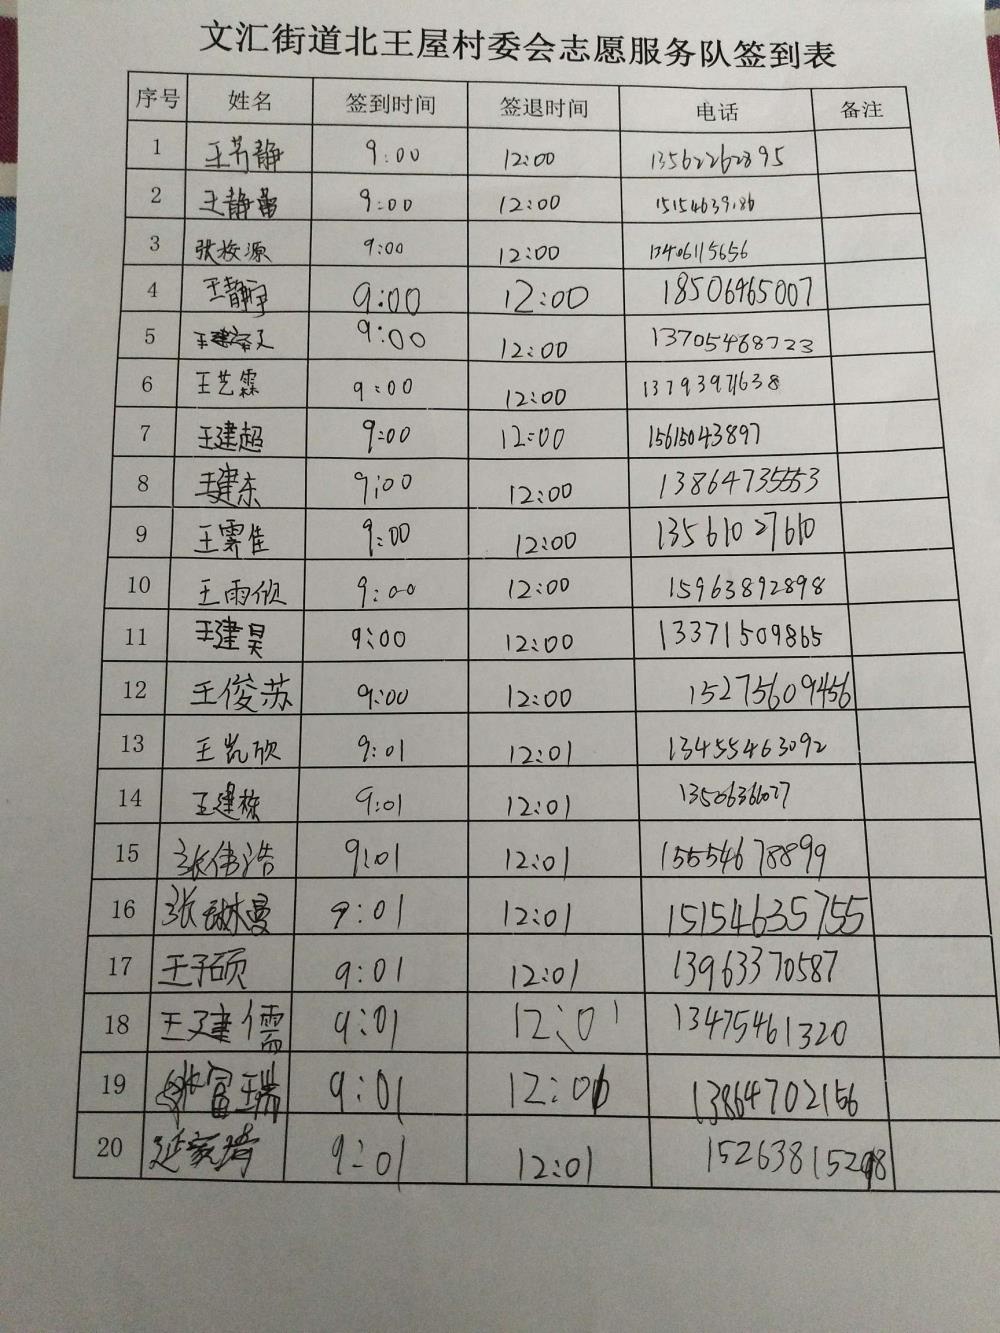 文汇街道北王屋村委会志愿服务队签到表
序号 姓名 签到时间 签退时间 电话 备注
1 王艺静 9:00 12:00 13562262895
2 王静蕾 9:00 12:00 15154639186
3 张梭源 9:00 12:00 13406115656
4 王静宇 9:00 12:00 18506465007
5 王建 9:00 12:00 13705468723
6 王艺霖 9:00 12:00 13793971638
7 王建超 9:00 12:00 15615043897
8 王建东 9:00 12:00 13864735553
9 王霁佳 9:00 12:00 13561027610
10 王雨欣 9:00 12:00 15963892898
11 王建昊 9:00 12:00 13371509865
12 王俊苏 9:00 12:00 15275609456
13 王凯欣 9:01 12:01 13455463092
14 王建栋 9:01 12:01 13506366027
15 张伟浩 9:01 12:01 15554678899
16 张 曼 9:01 12:01 15154635755
17 王子硕 9:01 12:01 13963370587
18 王建儒 9:01 12:01 13475461320
19 富瑞 9:01 12:01 13864702156
20 延家琦 9:01 12:01